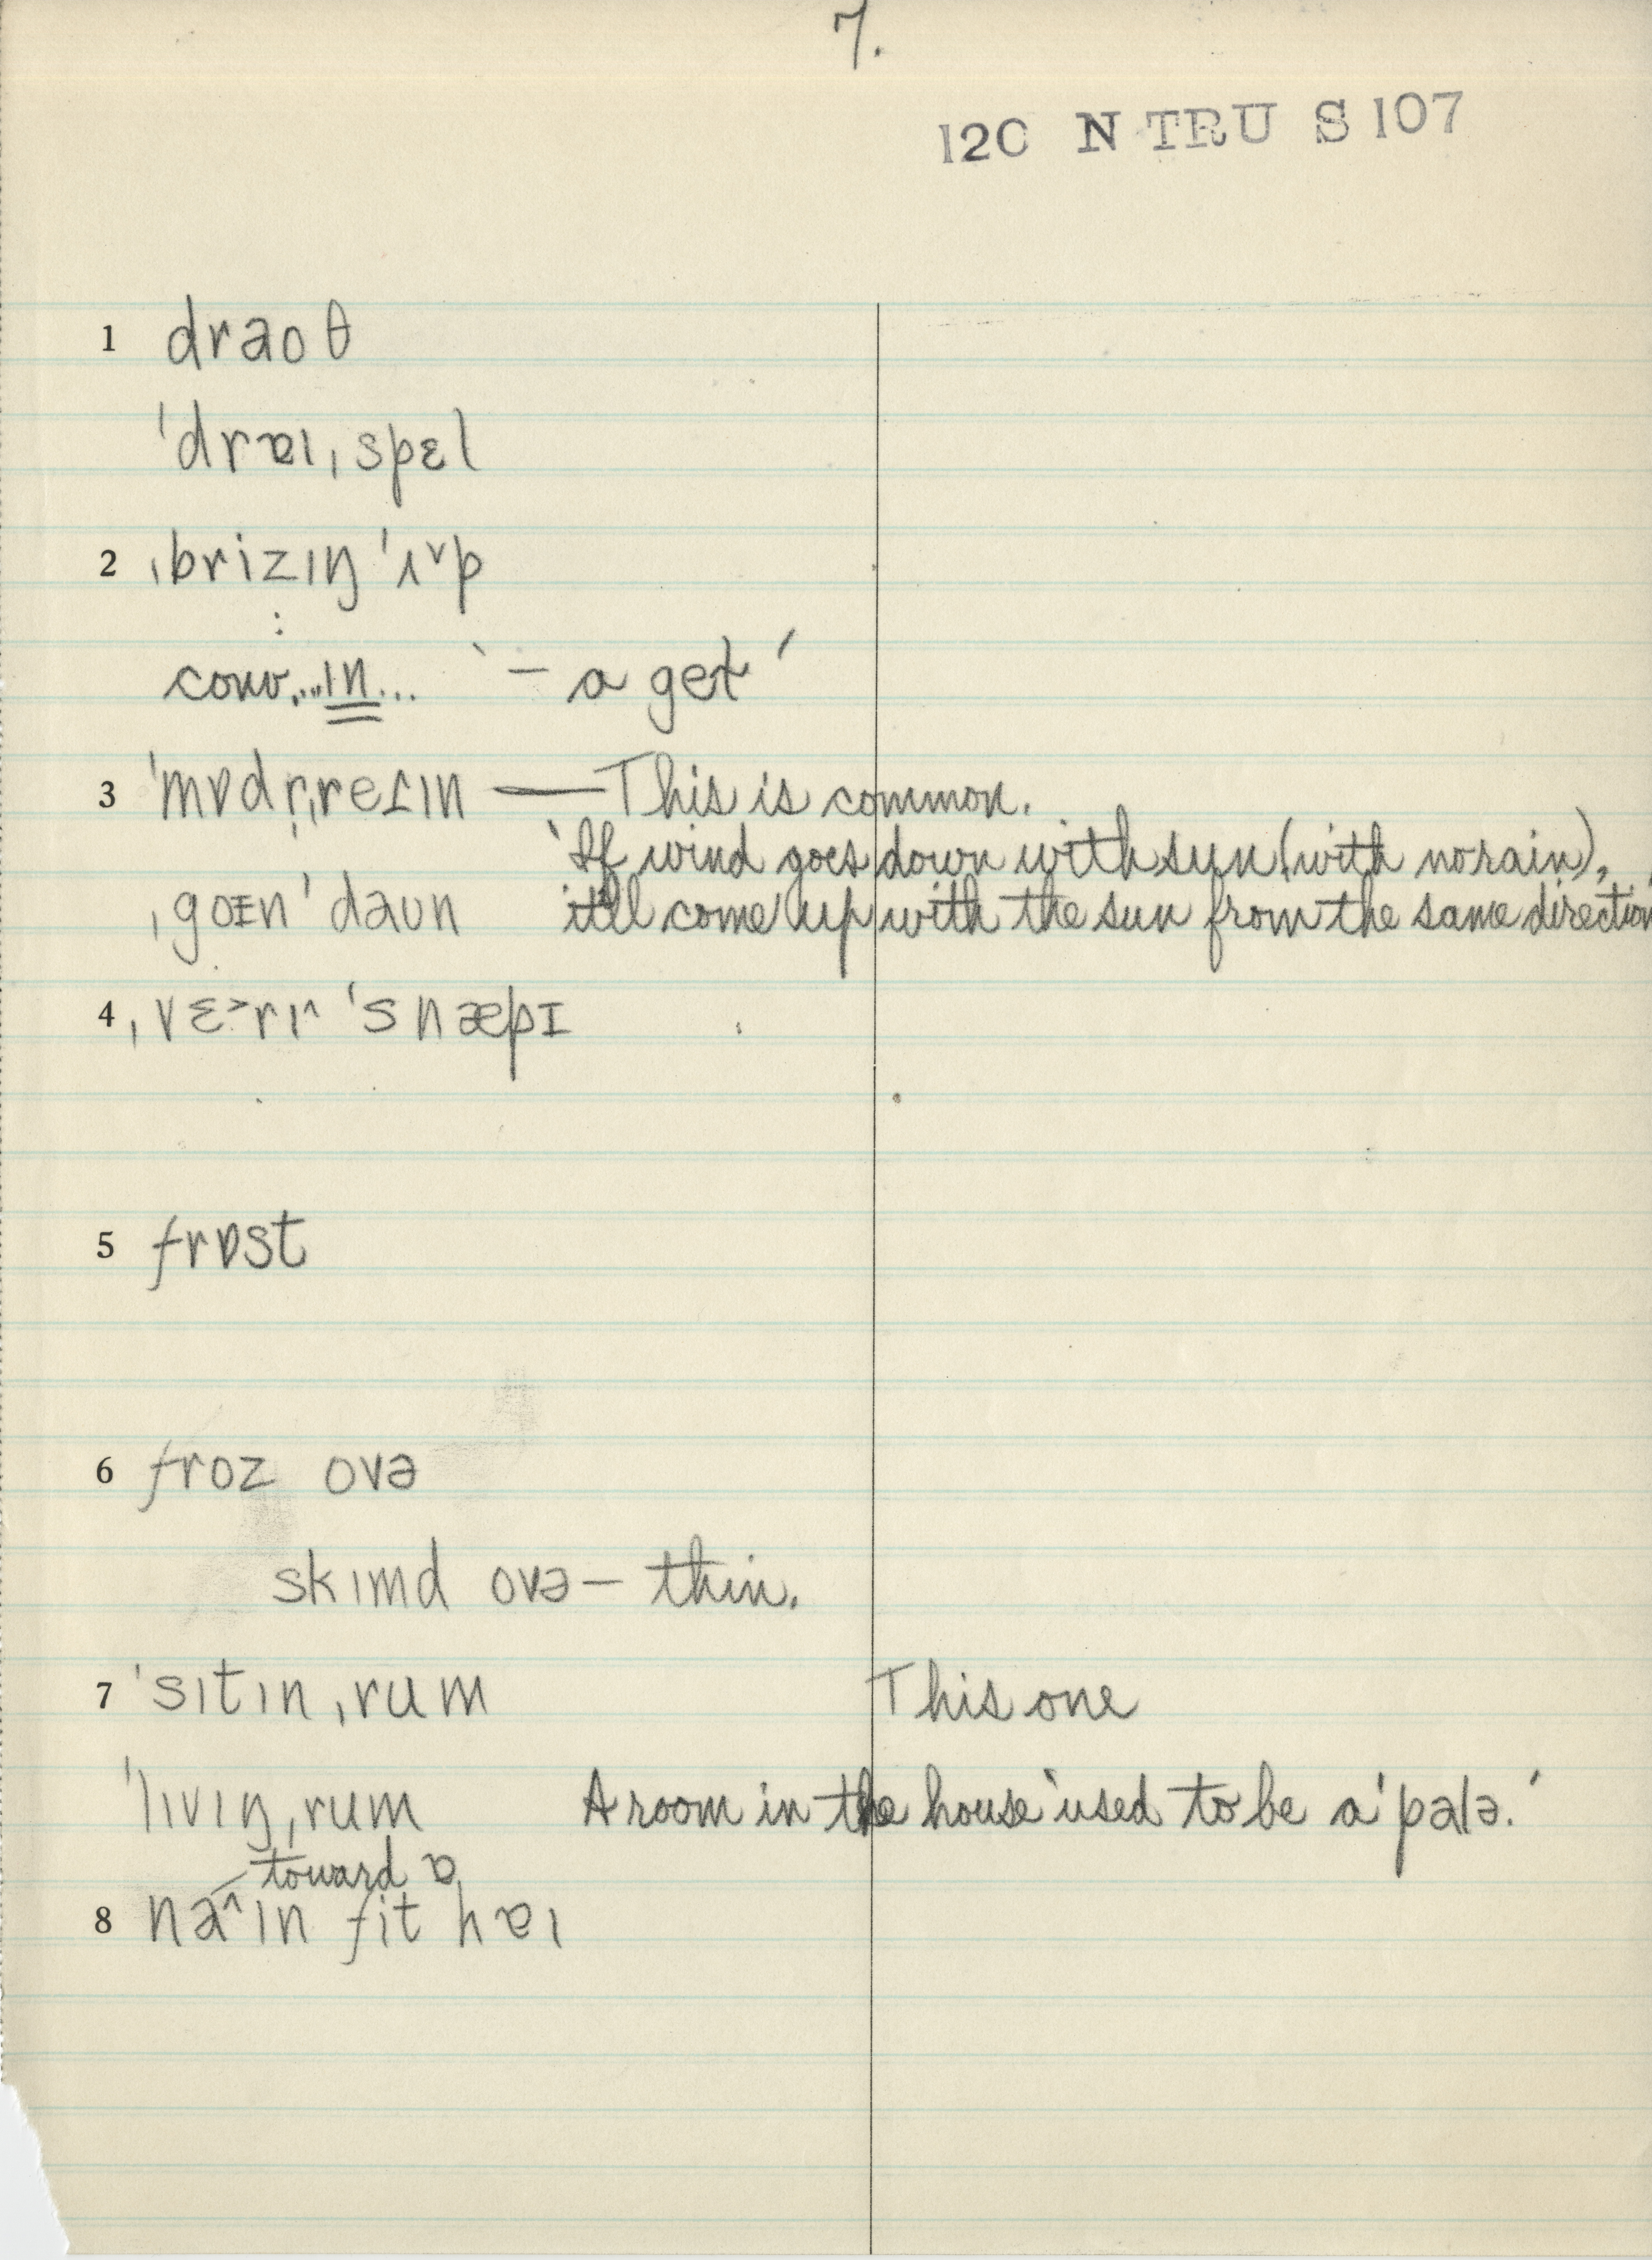 7.
120 N TRU S 107
1 draoθ
ˈdrɐɪˌspɛl
2 ˌbrizɪŋ ˈʌ˅p
:
conv....ɪn... ‘– a get’
3 ˈmɒdr̩ˌreɪɪn — This is common.
‘If wind goes down with sun (with no rain),
ˌgoɪn ˈdaʊn it'll come up with the sun from the same direction
4 ˌvɛ˃rɪ˄ ˈsnæpɪ
5 frɒst
6 froz ovə
skɪmd ovə – thin.
7 ˈsɪtɪn ˌrum This one
ˈlɪvɪŋ ˌrum A room in the house ‘used to be a ˈpalə.’
– toward ɐ
8 na˄ɪn fit hɐɪ